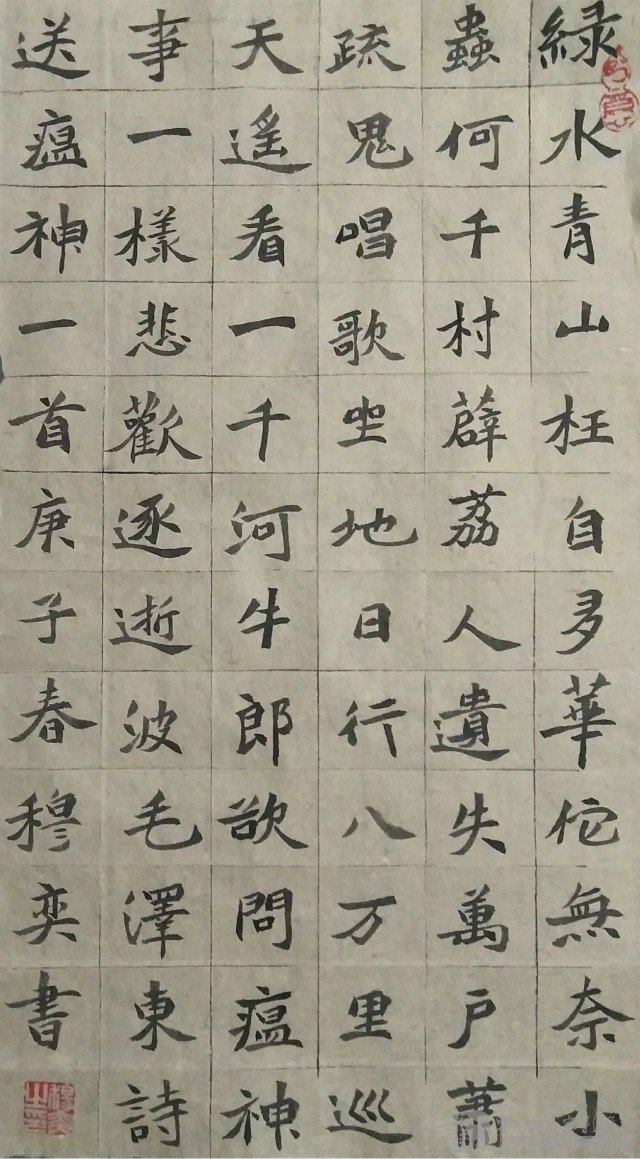 緑水青山枉自多華佗無奈小
蟲何千村薜荔人遺失萬戶蕭
疏鬼唱歌坐地日行八万里巡
天遥看一千河牛郎欲問瘟神
事一樣悲歡逐逝波毛澤東詩
送瘟神一首庚子春穆奕書